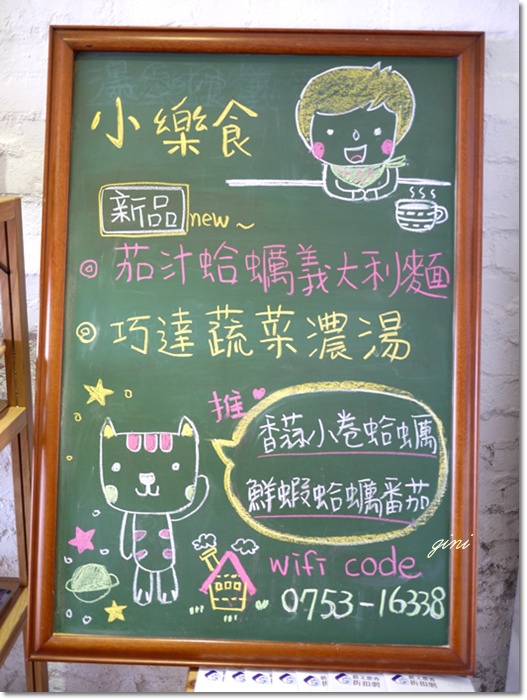 小樂食
新品new~
◎茄汁蛤蠣義大利麵
◎巧達蔬菜濃湯
推♥
香蒜小卷蛤蠣
鮮蝦蛤蠣番茄
gini
wifi code
0753-16338